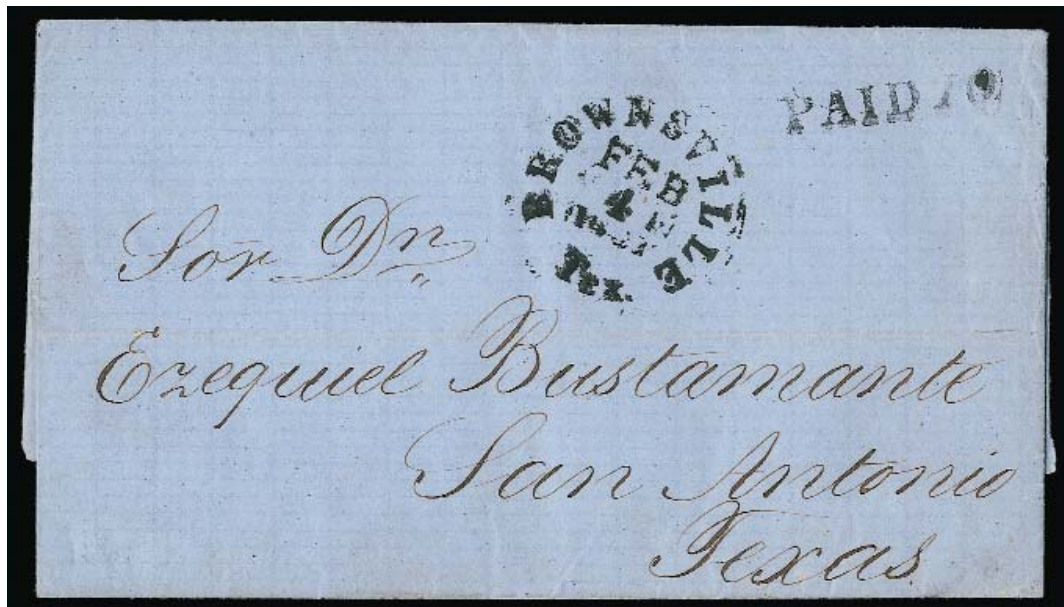 PAID 10
BROWNSVILLE
FEB
4
Tex.
Sor. Dn
Ezequiel Bustamante
San Antonio
Texas